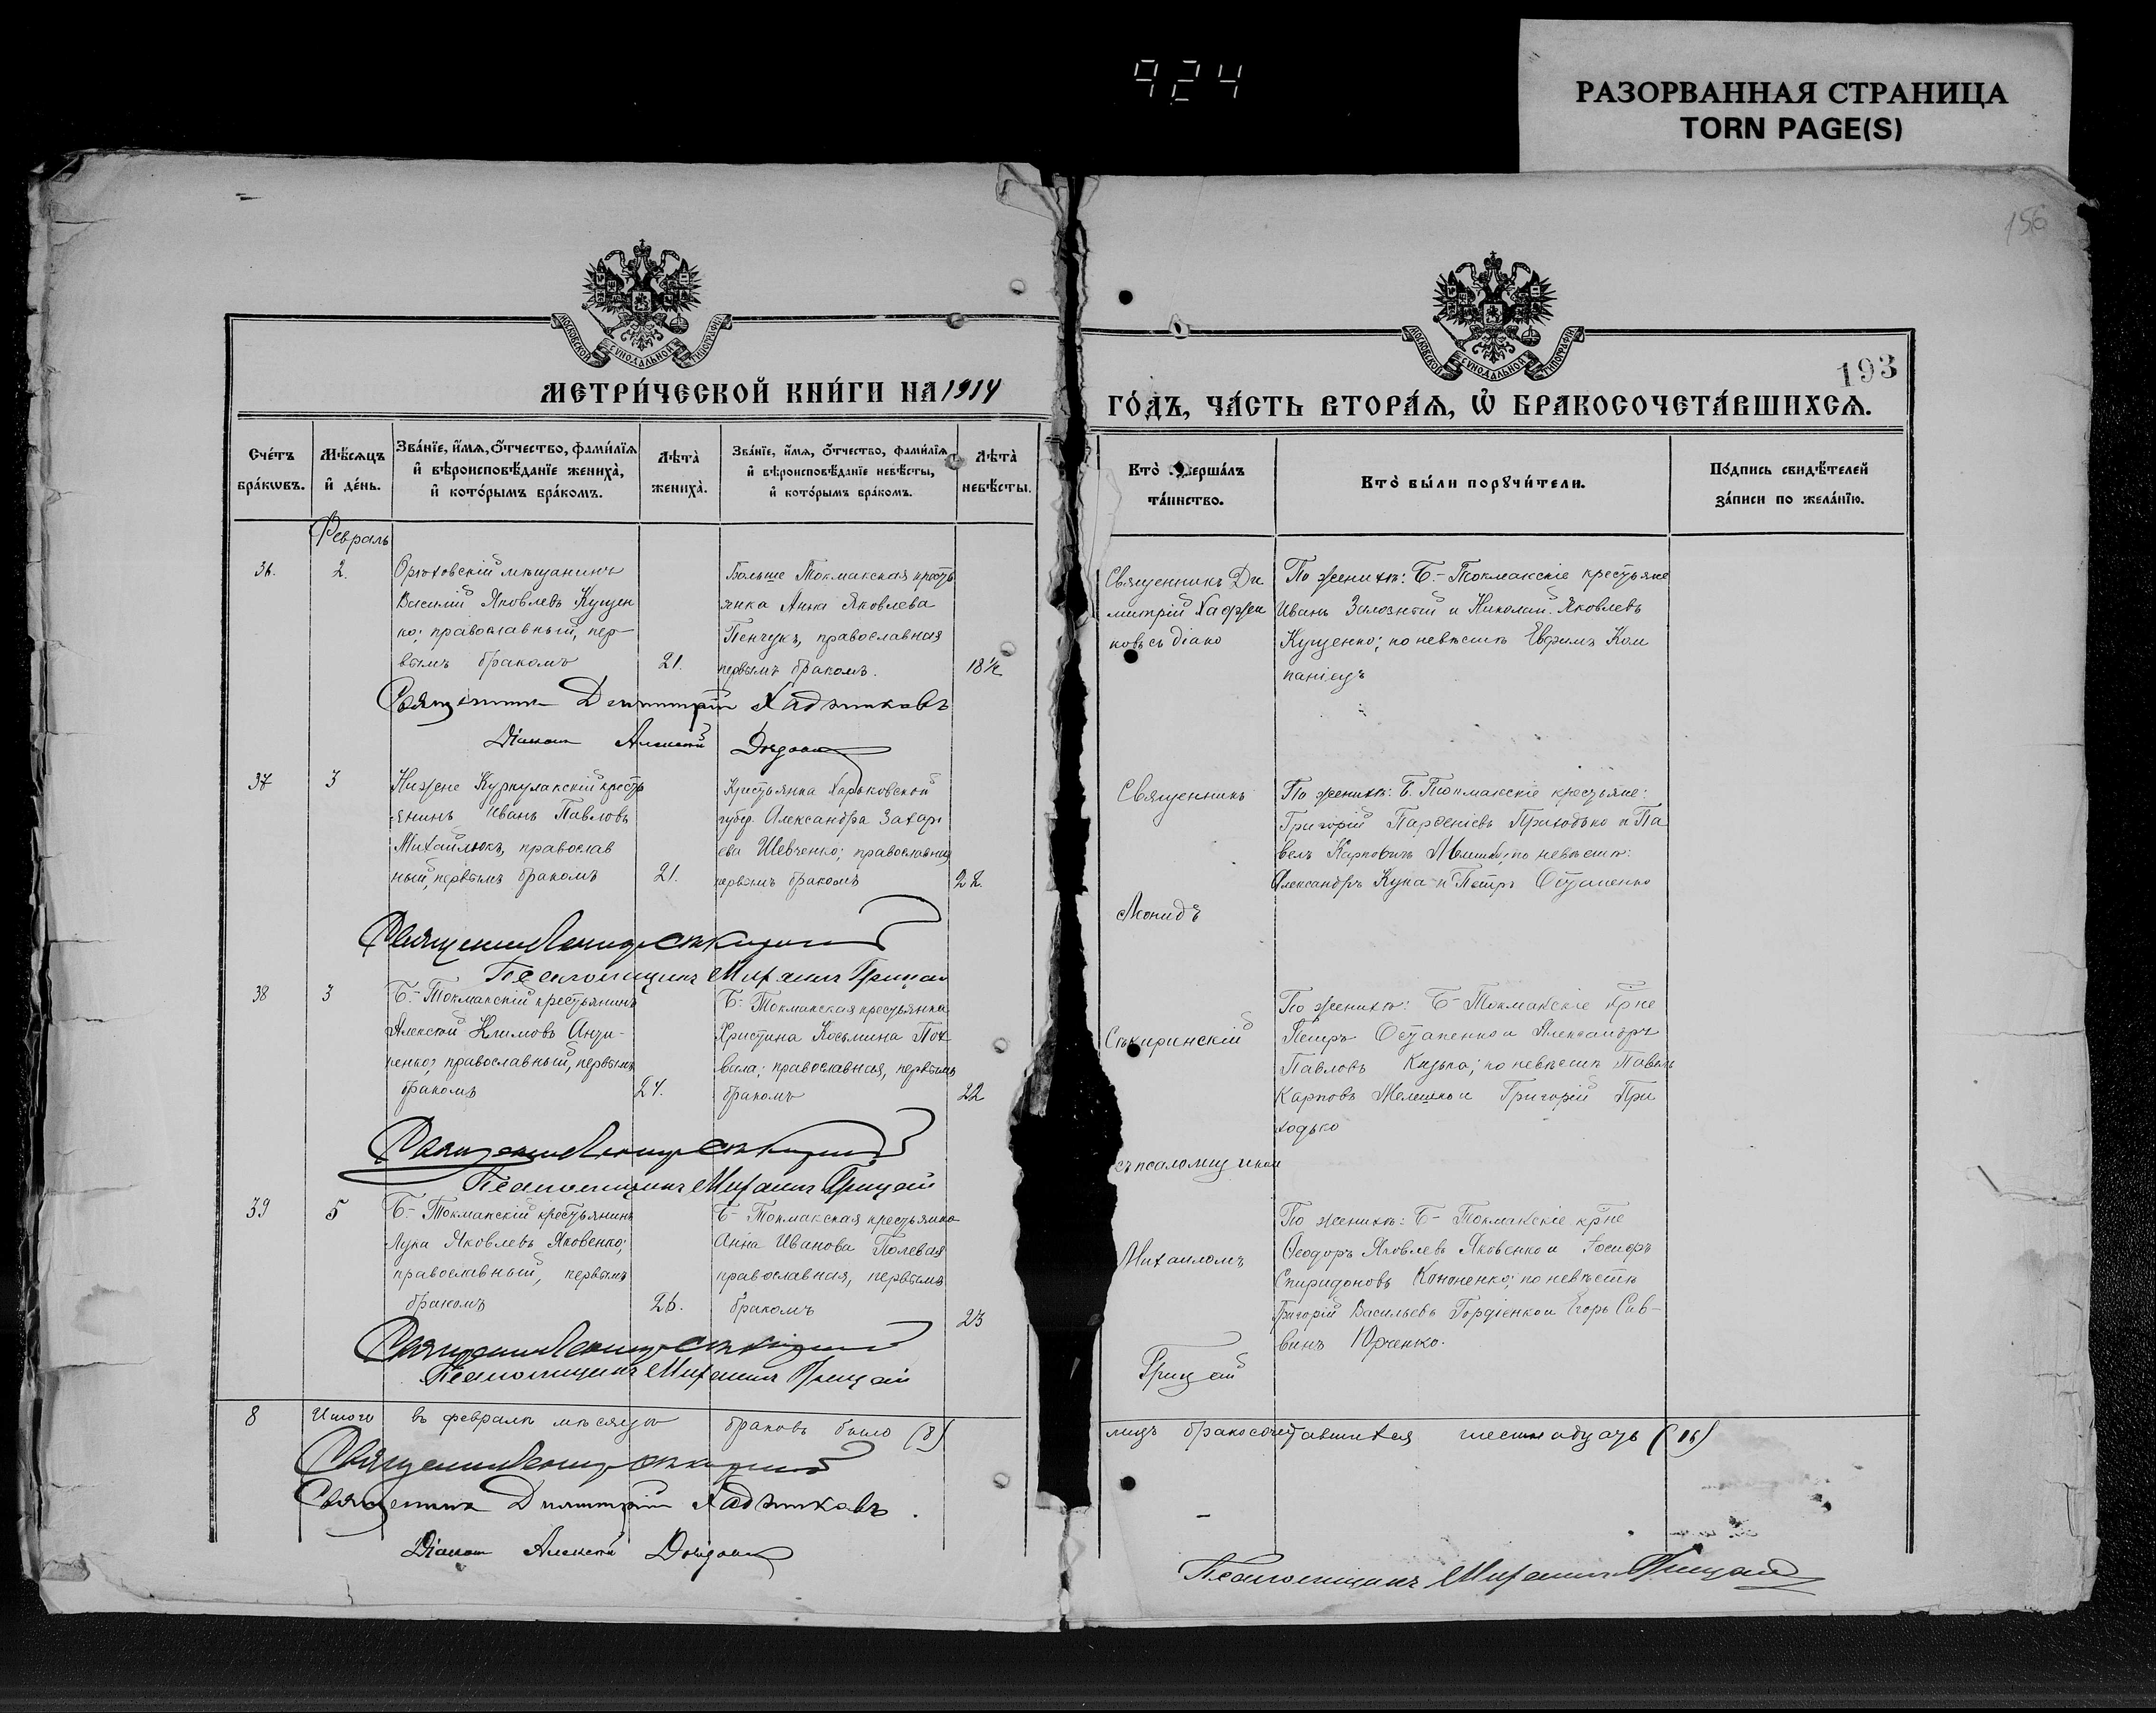 924
РАЗОРВАННАЯ СТРАНИЦА
TORN PAGE(S)
156
МОСКОВСКОЙ СѴНОДАЛЬНОЙ ТИПОГРАФІИ
МОСКОВСКОЙ СѴНОДАЛЬНОЙ ТИПОГРАФІИ
193
МЕТРИ́ЧЕСКОЙ КНИ́ГИ НА 1914
ГО́ДЪ, ЧА́СТЬ ВТОРА́Я, Ѽ БРАКОСОЧЕТА́ВШИХСЯ.
Сче́тъ
бра́кѡвъ.
Мѣ́сяцъ
и҆ де́нь.
Зва́нїе, и҆́мя, ѻ҆́тчество, фами́лїя
и҆ вѣроисповѣ́данїе жениха̀,
и҆ кото́рымъ бра́комъ.
Лѣта̀
жениха̀.
Зва́нїе, и҆́мя, ѻ҆́тчество, фами́лїя
и҆ вѣроисповѣ́данїе невѣ́сты,
и҆ кото́рымъ бра́комъ.
Лѣта̀
невѣ́сты.
Кто̀ ершáлъ
та́инство.
Кто̀ бы́ли порꙋчи́тели.
По́дпись свидѣ́телей
за́писи по жела́нїю.
Февраль
36.
2.
Орѣховскій мѣщанинъ
Василій Яковлевъ Кущен
ко; православный, пер-
вымъ бракомъ
21.
Больше Токмакская кресть
янка Анна Яковлева
Пенчукъ, православная
первымъ бракомъ.
18½
Священникъ Ди
митрій Хаджи
ковъ съ діако
По женихѣ: Б.-Токмакскіе крестьяне
Иванъ и Николай Яковлевъ
Кущенко; по невѣстѣ Ефимъ Ком
паніецъ
Священникъ Димитрій Хаджиковъ
Діаконъ Алексѣй
37
3
Нижне Куркулакскій кресть
янинъ Иванъ Павловъ
Михайлюкъ, православ
ный, первымъ бракомъ
21.
Крестьянка Харьковской
губер. Александра Захарі
ева Шевченко; православная
первымъ бракомъ
22.
Священникъ
По женихѣ: Б. Токмакскіе крестьяне:
Григорій Парѳеніевъ Приходько и Па
велъ Карповичъ по невѣстѣ:
Александръ и Петръ Остапенко
Леонидъ
Священникъ Леонидъ Сѣкиринскій
Псаломщикъ Михаилъ Грицай
38
3
Б.-Токмакскій крестьянинъ
Алексѣй Климовъ
ненко; православный, первымъ
бракомъ
24.
Б.-Токмакская крестьянка
Христина Косьмина Пох
вила; православная, первымъ
бракомъ
22
Сѣкиринскій
По женихѣ: Б-Токмакскіе кр-не
Петръ Остапенко и Александръ
Павловъ по невѣстѣ Павелъ
Карповъ Мелешко и Григорій При
ходько
съ псаломщикомъ
Священникъ Леонидъ Сѣкиринскій
Псаломщикъ Михаилъ Грицай
39
5
Б-Токмакскій крестьянинъ
Лука Яковлевъ Яковенко;
православный, первымъ
бракомъ
26.
Б-Токмакская крестьянка
Анна Иванова Полевая
православная, первымъ
бракомъ
23
Михаиломъ
По женихѣ: Б-Токмакскіе кр-не
Ѳеодоръ Яковлевъ Яковенко и
Спиридоновъ Кононенко; по невѣстѣ
Григорій Васильевъ Гордіенко и Егоръ Сав-
винъ Юрченко.
Грицай
Священникъ Леонидъ Сѣкиринскій
Псаломщикъ Михаилъ Грицай
8 Итого въ февралѣ мѣсяцѣ браковъ было (8)
лицъ бракосочетавшихся шестнадцать (16)
Священникъ Леонидъ Сѣкиринскій
Священникъ Димитрій Хаджиковъ.
Діаконъ Алексѣй
Псаломщикъ Михаилъ Грицай